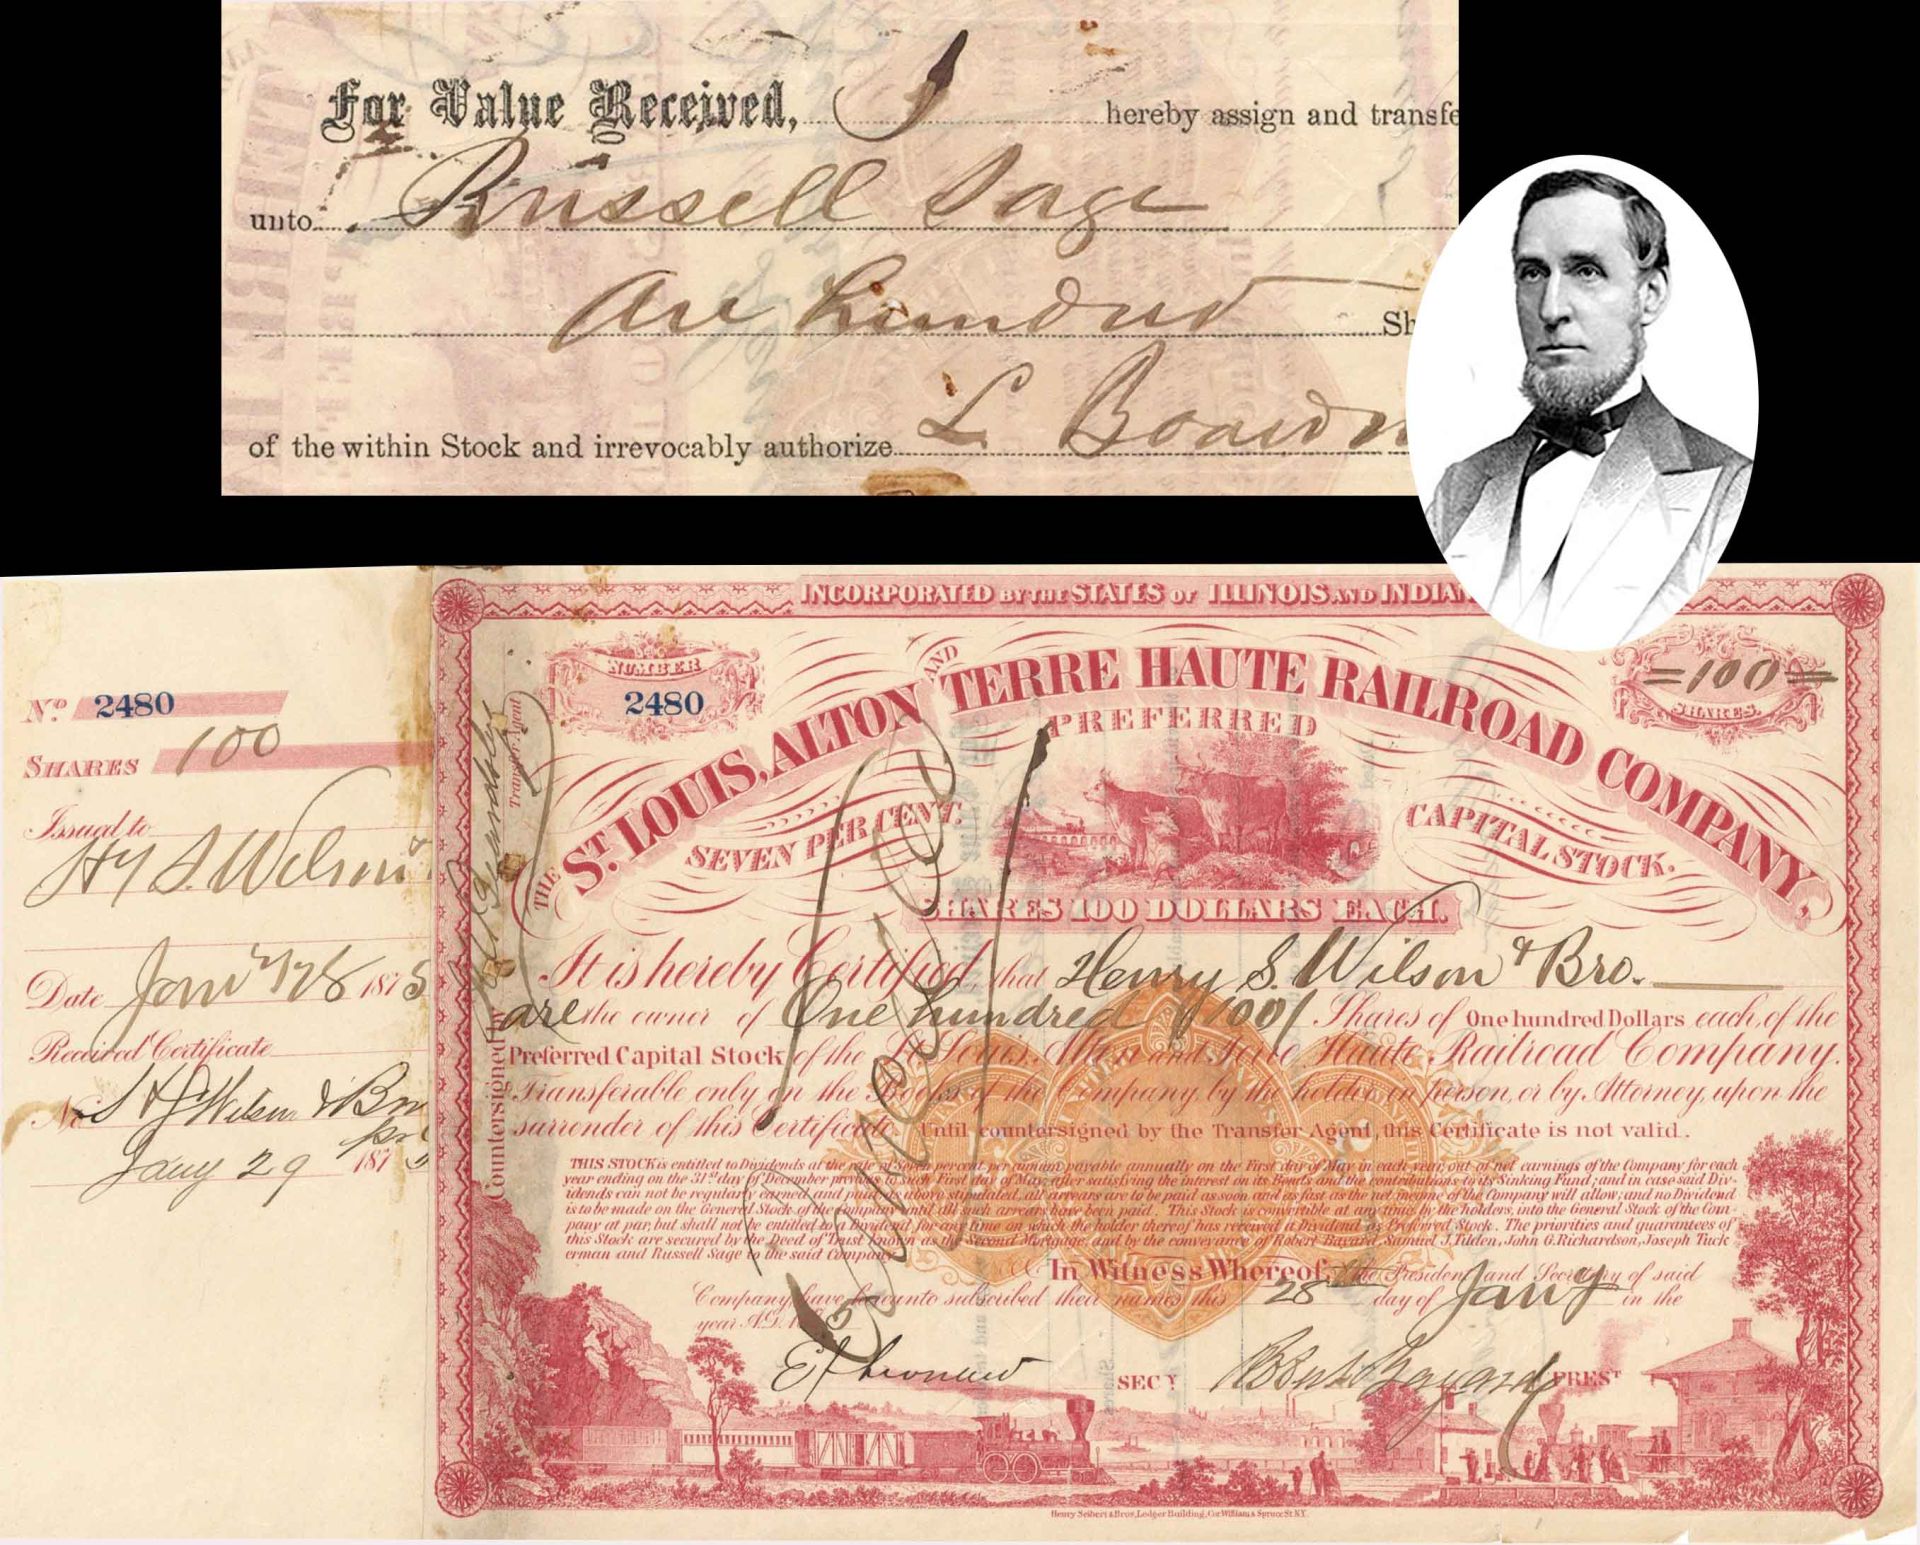 For Value Received, I hereby assign and transfe
unto Russell Sage
One hundred Sh
of the within Stock and irrevocably authorize L. Boardm
INCORPORATED BY THE STATES OF ILLINOIS AND INDIAN
Nº 2480
SHARES 100
Issued to
Hy S. Wilson &
Date Jany 28 1875
Received Certificate
No H S Wilson & Bro
Jany 29 187
Countersigned by
Transfer Agent
NUMBER
2480
=100=
SHARES.
THE ST. LOUIS, ALTON AND TERRE HAUTE RAILROAD COMPANY,
PREFERRED
SEVEN PER CENT. CAPITAL STOCK.
SHARES 100 DOLLARS EACH.
It is hereby Certified, that Henry S. Wilson & Bro.
are the owner of One hundred /100/ Shares of One hundred Dollars each, of the
Preferred Capital Stock of the St. Louis, Alton and Terre Haute Railroad Company.
Transferable only on the Books of the Company by the holder in person, or by Attorney, upon the
surrender of this Certificate. Until countersigned by the Transfer Agent, this Certificate is not valid.
THIS STOCK is entitled to Dividends at the rate of Seven per cent. per annum, payable annually on the First day of May in each year, out of net earnings of the Company for each
year ending on the 31st day of December previous to such First day of May, after satisfying the interest on its Bonds and the contributions to its Sinking Fund; and in case said Div-
idends can not be regularly earned and paid as above stipulated, all arrears are to be paid as soon and as fast as the net income of the Company will allow; and no Dividend
is to be made on the General Stock of the Company until all such arrears have been paid. This Stock is convertible at any time, by the holders, into the General Stock of the Com-
pany at par; but shall not be entitled to a Dividend for any time on which the holder thereof has received a Dividend as Preferred Stock. The priorities and guarantees of
this Stock are secured by the Deed of Trust known as the Second Mortgage, and by the conveyance of Robert Bayard, Samuel J. Tilden, John G. Richardson, Joseph Tuck
erman and Russell Sage to the said Company.
In Witness Whereof, the President and Secretary of said
Company have hereunto subscribed their names this 28th day of Jany in the
year A.D. 5
SECY Robert Bayard PREST
Henry Seibert & Bros, Ledger Building, Cor William & Spruce St N.Y.